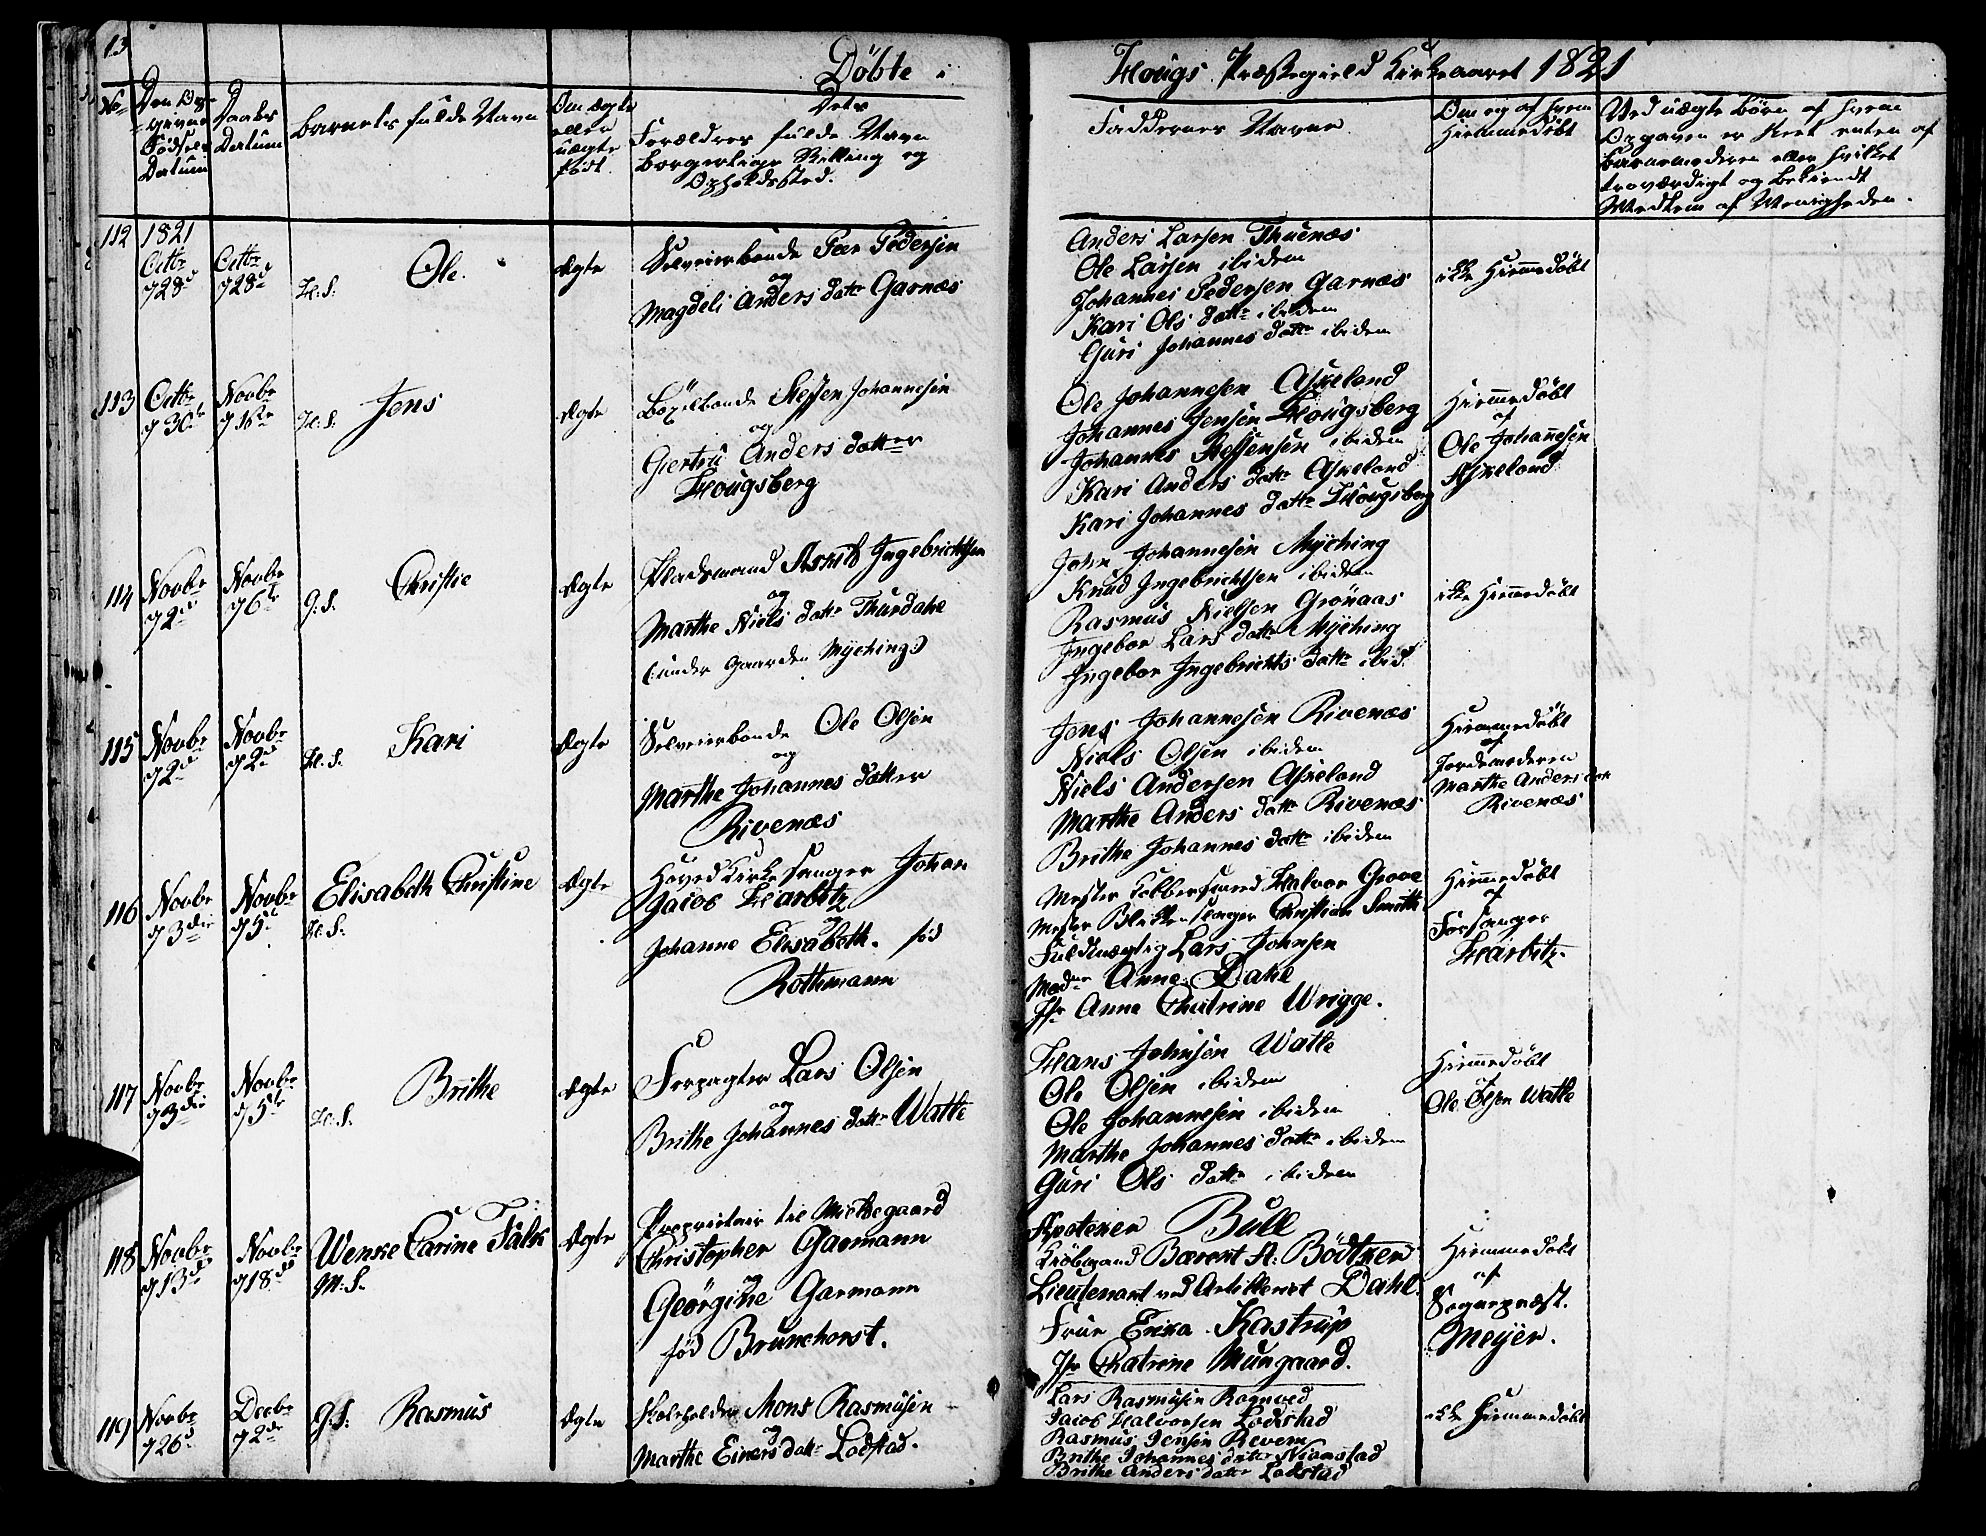 13
Döbte i Hougs Præstegield Kirkeaaret 1821
No
Den Opgivne Födsels Datum
Daabs Datum
Barnets fulde Navn
Om ægte eller uægte född.
Dets Forældres fulde Navn borgerlige Stilling og Opholdssted.
Faddernes Navne.
Om og af hvem Hiemmedøbt
Ved uægte Börn af hvem Opgaven er skeet enten af Barnemoderen eller hvilket troværdigt og bekiendt Medlem af Menigheden.
112
1821
Octbr
d 28d
Octbr
d 28d
H. S.
Ole.
Ægte
Selveierbonde Peer Pedersen
og
Magdeli Anders datr Garnæs
Anders Larsen Thuenæs
Ole Larsen ibidem
Johannes Pedersen Garnæs
Kari Ols datr ibidem
Guri Johannes datr ibidem
ikke Hiemmedøbt
113
Octbr
d 30te
Novbr
d 1ste
H. S.
Jens
Ægte
Böxelbonde Steffen Johannesen
og
Giertru Anders datter
Hougsberg
Ole Johannesen Askeland
Johannes Jensen Hougsberg
Johannes Steffensen ibidem
Kari Anders datr Askeland
Kari Johannes datr Hougsberg
Hiemmedøbt
af
Ole Johannesen
Askeland
114
Novbr
d 2d
Novbr
d 6te
G. S.
Christie
Ægte
Pladsmand Ingebrichtsen
og
Marthe Niels datr Thurdahl
(under Gaarden Myching)
John Johannesen Myching
Knud Ingebrichtsen ibidem
Rasmus Nielsen Grönaas
Ingebor Lars datr Myching
Ingebor Ingebrichts datr ibid.
ikke Hiemmedøbt
115
Novbr
d 2d
Novbr
d 2d
H. S.
Kari
Ægte
Selveierbonde Ole Olsen
og
Marthe Johannes datter
Rivenæs
Jens Johannesen Rivenæs
Niels Olsen ibidem
Niels Andersen Askeland
Marthe Anders datr Rivenæs
Brithe Johannes datr ibidem
Hiemmedøbt
af
Jordemoderen
Marthe Anders datr
Rivenæs
116
Novbr
d 3die
Novbr
d 5t
Elisabeth Christine
H. S.
Ægte
Hovedkirkesanger Johan
Jacob Harbitz
og
Johanne Elisabeth. fød
Rothmann
Mester Kobbersmed Halvor Grove
Mester Blikkenslager Christian Smith
Fuldmægtig Lars Johnsen
Madme Anne Dahl
Jfr Anne Chatrine Wrigge.
Hiemmedøbt
af
Forsanger
Harbitz.
117
Novbr
d 3die
Novbr
d 5te
H. S.
Brithe
Ægte
Forpagter Lars Olsen
og
Brithe Johannes datr Watle
Hans Johnsen Watle
Ole Olsen ibidem
Ole Johannesen ibidem
Marthe Johannes datr ibidem
Guri Ols datr ibidem
Hiemmedøbt
af
Ole Olsen Watle
118
Novbr
d 13de
Novbr
d 18de
Wenke Carine Falk
M. S.
Ægte
Proprietair til Mieldegaard
Christopher Garmann
og
Georgine Garmann
fød Brunchorst.
Apoteker Bull
Kiöbmand Barent A. Bödtker
Lieutenant ved Artilleriet Dahl.
Frue Erika Kastrup
Jfr Chatrine Mungaard.
Hiemmedøbt
af
Sogepræst.
Meyer.
119
Novbr
d 26d
Decbr
d 2den
G. S.
Rasmus
Ægte
Skoleholder Mons Rasmusen
og
Marthe Einers datr Lodstad.
Lars Rasmusen Rognved
Jacob Halvorsen Lodstad
Rasmus Jensen Revem
Brithe Johannes datter Niaastad
Brithe Anders datter Lodstad
ikke Hiemmedøbt